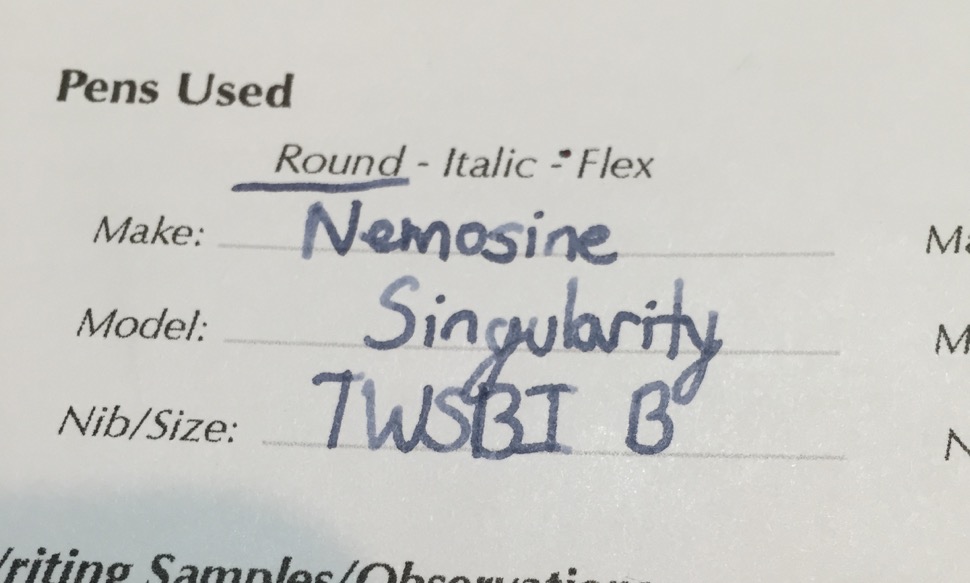 Pens Used
Round - Italic - Flex
Make: Nemosine
Model: Singularity
Nib/Size: TWSBI B
Writing Samples/Observations